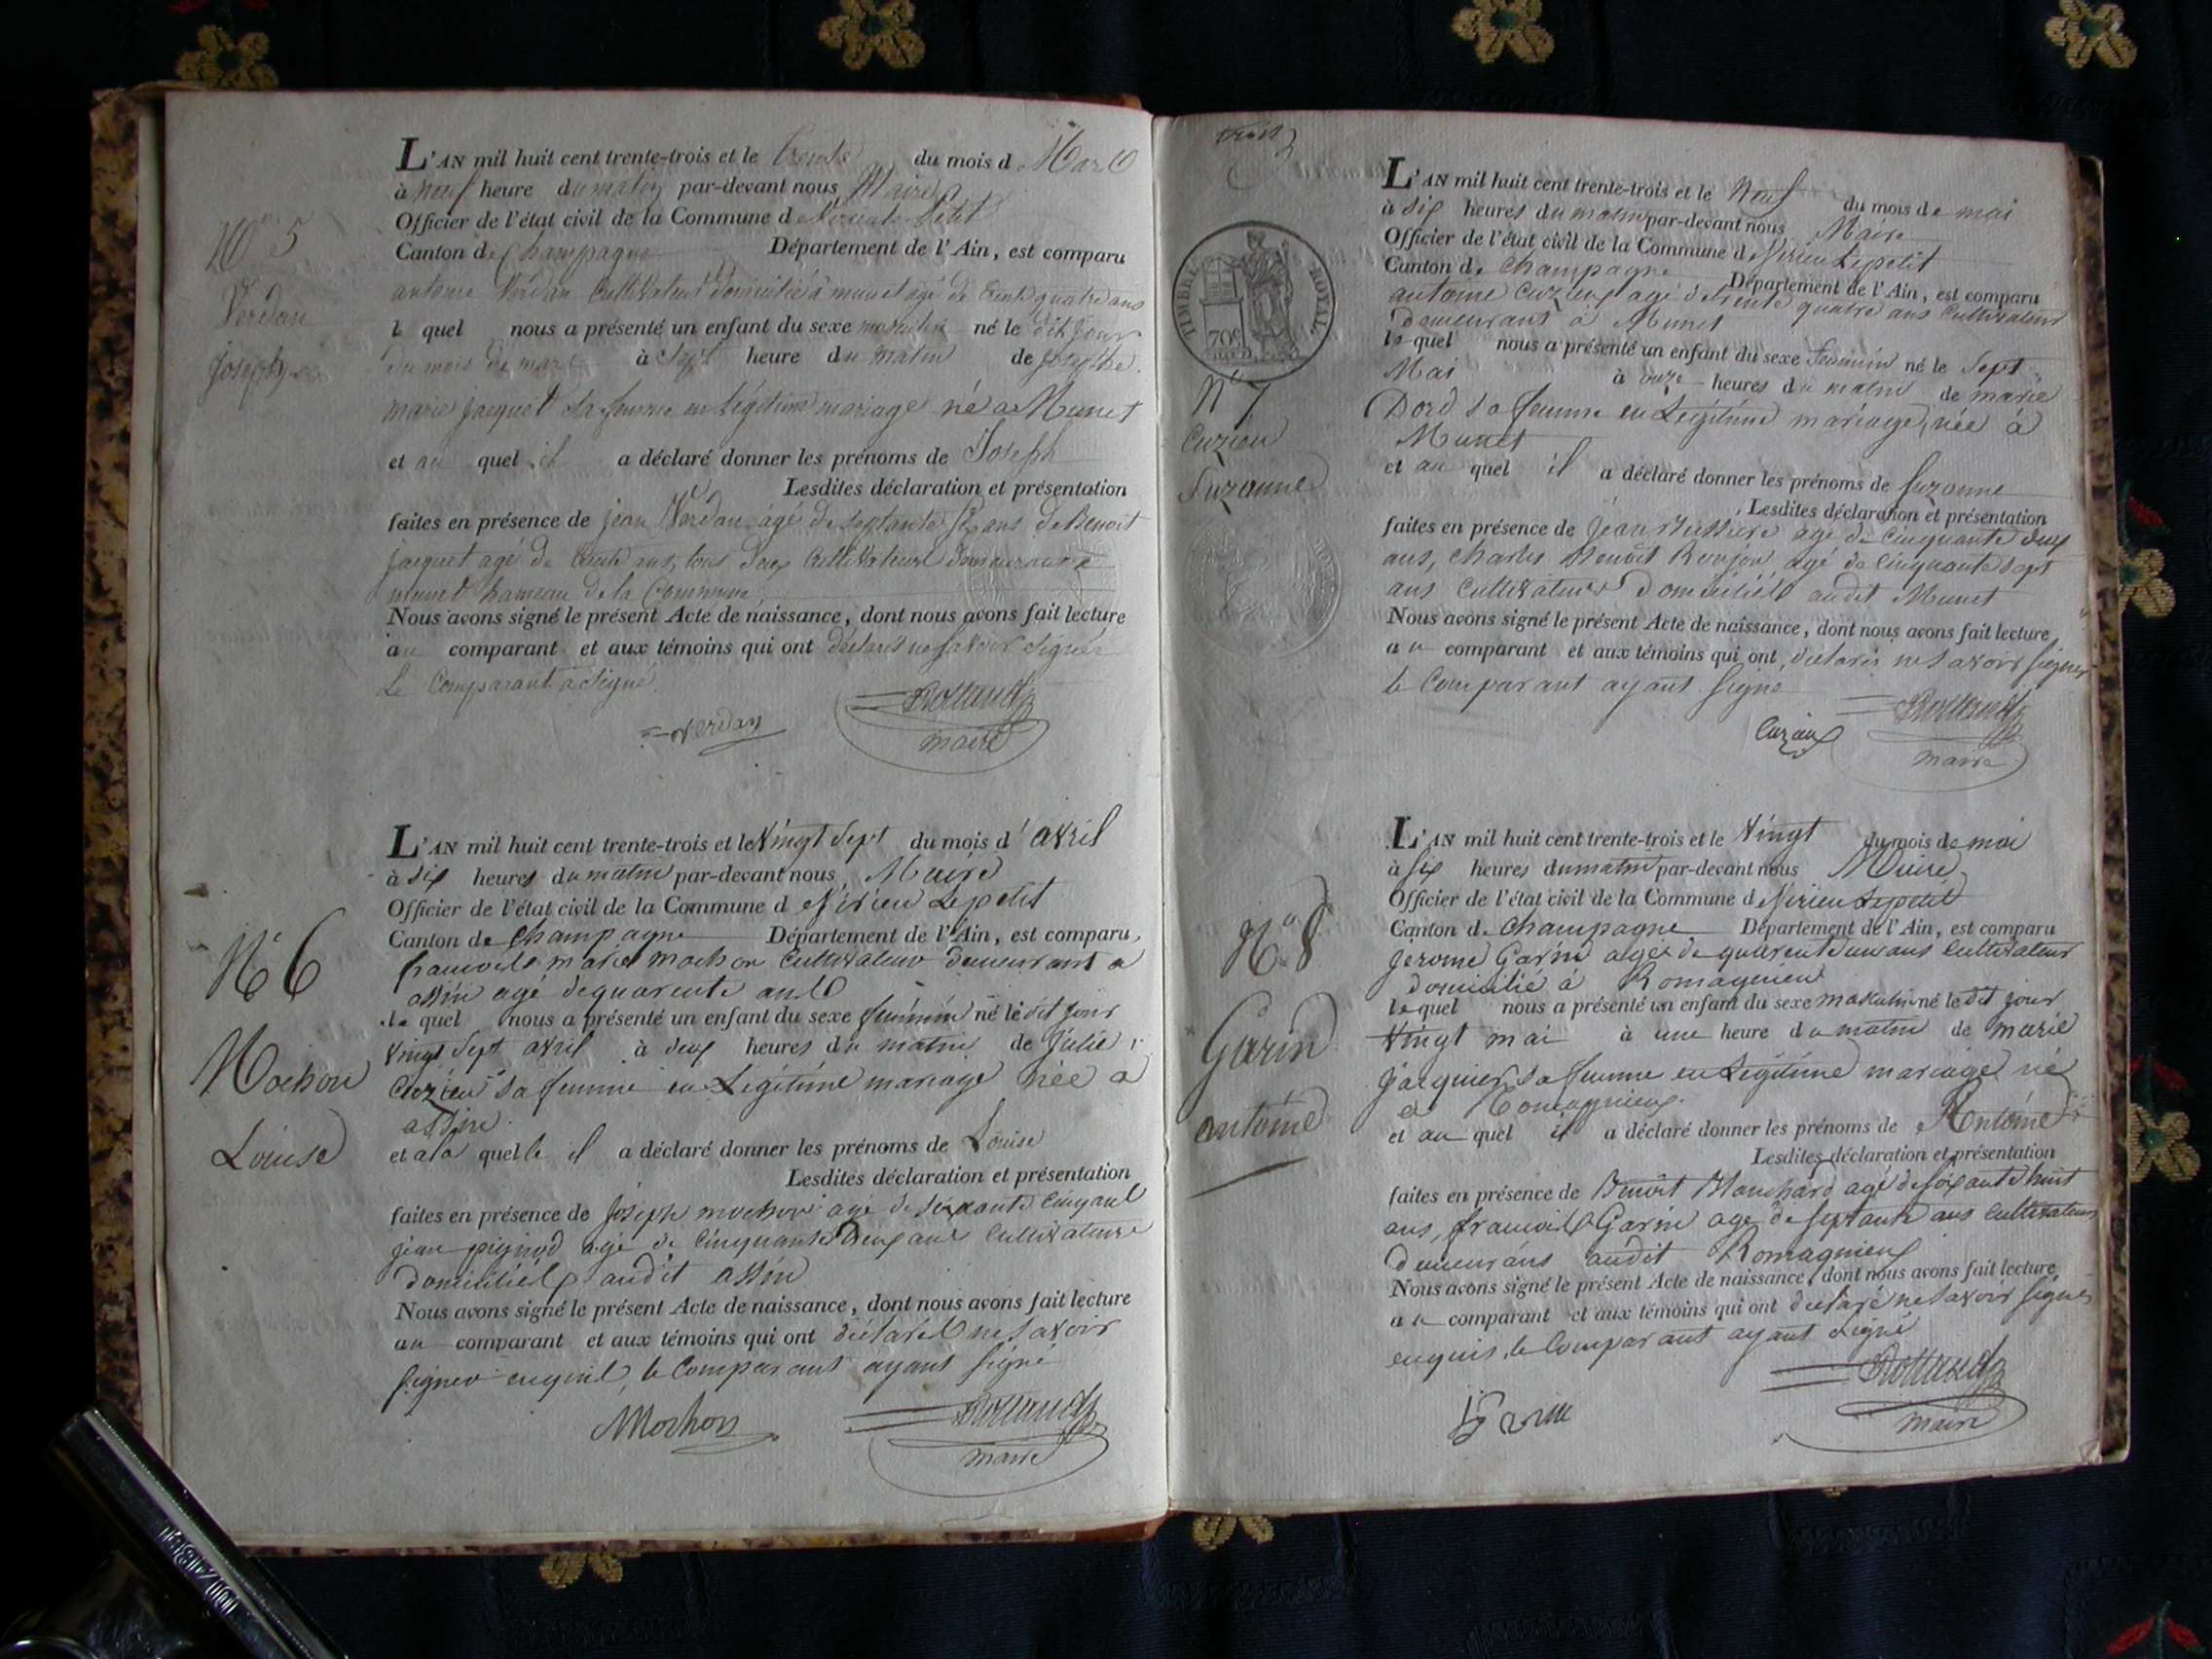 L'AN mil huit cent trente-trois et le trente du mois d Mars
à neuf heure du matin par-devant nous Maire
Officier de l'état civil de la Commune d Virieu le Petit
Canton de Champagne Département de l'Ain, est comparu
antoine Verdan Cultivateur domicilié à munet agé de trente quatre ans
le quel nous a présenté un enfant du sexe masculin né le dit jour
du mois de mars à Sept heure du matin de josephte
marie jacquet Sa femme en légitime mariage né a Munet
et au quel il a déclaré donner les prénoms de Joseph
Lesdites déclaration et présentation
faites en présence de jean Verdan agé de septante ans de Benoit
jacquet agé de trente ans, tous deux Cultivateurs demeurant a
munet hameau de la Commune
Nous avons signé le présent Acte de naissance, dont nous avons fait lecture
au comparant et aux témoins qui ont déclarés ne Savoir Signer
Le Comparant a Signé
Verdan
maire
No 5
Verdan
Joseph
L'AN mil huit cent trente-trois et le Vingt Sept du mois d' avril
à Six heures du matin par-devant nous Maire
Officier de l'état civil de la Commune d Virieu Lepetit
Canton de Champagne Département de l'Ain, est comparu
francois marie mochon Cultivateur demeurant a
assin agé de quarente ans
le quel nous a présenté un enfant du sexe feminin né le dit jour
vingt Sept avril à deux heures du matin de julie
Cuzieu Sa femme en Légitime mariage née a
assin
et a la quelle il a déclaré donner les prénoms de Louise
Lesdites déclaration et présentation
faites en présence de joseph mochon agé de soixante Cinq ans
jean pignod agé de Cinquante Deux ans Cultivateurs
domiciliés audit assin
Nous avons signé le présent Acte de naissance, dont nous avons fait lecture
au comparant et aux témoins qui ont déclarés ne Savoir
Signer enquis, le Comparant ayant Signé
Mochon
maire
No 6
Mochon
Louise
trois
TIMBRE ROYAL
70c
L'AN mil huit cent trente-trois et le Neuf du mois de mai
à Six heures du matin par-devant nous Maire
Officier de l'état civil de la Commune d Virieu Lepetit
Canton de Champagne Département de l'Ain, est comparu
antoine Cuzieux agé de trente quatre ans Cultivateur
demeurant à Munet
le quel nous a présenté un enfant du sexe feminin né le Sept
Mai à onze heures du matin de marie
Dord Sa femme en Légitime mariage, née à
Munet
et au quel il a déclaré donner les prénoms de Suzanne
Lesdites déclaration et présentation
faites en présence de jean agé de Cinquante deux
ans, Charles Benoit agé de Cinquante Sept
ans Cultivateurs domiciliés audit Munet
Nous avons signé le présent Acte de naissance, dont nous avons fait lecture
au comparant et aux témoins qui ont déclarés ne Savoir Signer
le Comparant ayant Signé
Cuzieux
maire
No 7
Cuzieu
Suzanne
L'AN mil huit cent trente-trois et le Vingt du mois de mai
à Six heures du matin par-devant nous Maire
Officier de l'état civil de la Commune d Virieu Lepetit
Canton de Champagne Département de l'Ain, est comparu
jerome Garin agé de quarente un ans Cultivateur
domicilié à Romagnieu
le quel nous a présenté un enfant du sexe masculin né le dit jour
Vingt mai à une heure du matin de marie
jacquier Sa femme en Légitime mariage né
a Romagnieux
et au quel il a déclaré donner les prénoms de Antoine
Lesdites déclaration et présentation
faites en présence de Benoit Blanchard agé de soixante huit
ans, francois Garin agé de septante ans Cultivateurs
demeurans audit Romagnieux
Nous avons signé le présent Acte de naissance, dont nous avons fait lecture
au comparant et aux témoins qui ont déclaré ne Savoir Signer
enquis, le Comparant ayant Signé
Garin
maire
No 8
Garin
antoine